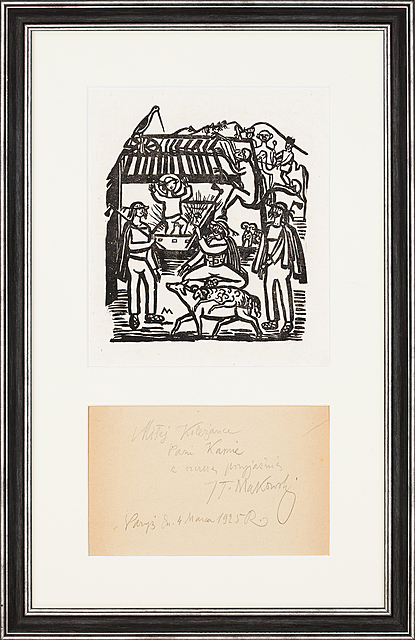 M
Miłej Koleżance
Pani Kamie
z przyjaźnią
T. Makowski
Paryż dn. 4 Marca 1925 R.